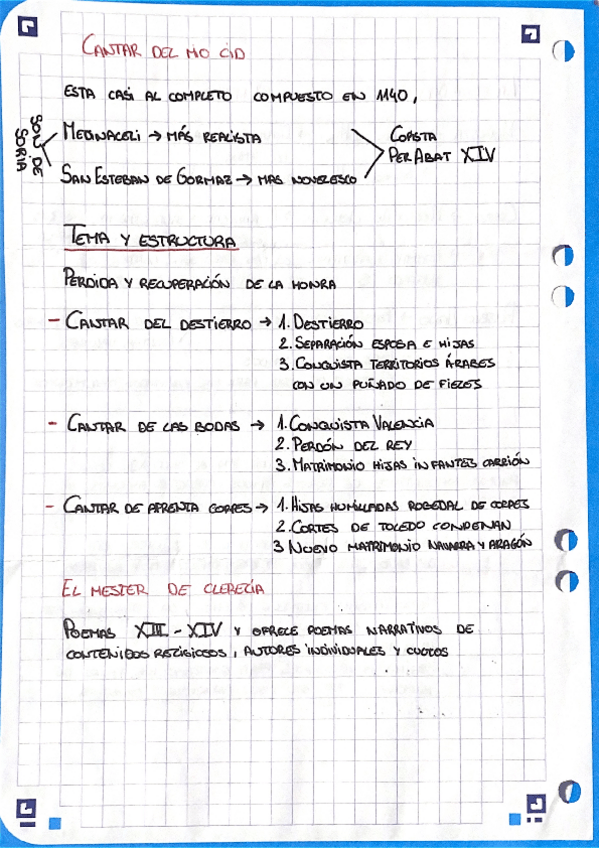 CANTAR DEL MO CID
ESTA CASI AL COMPLETO COMPUESTO EN 1140,
SON DE SORIA
MEDINACELI → MÁS REALISTA
SAN ESTEBAN DE GORMAZ → MAS NOVELESCO
COPISTA
PER ABAT XIV
TEMA Y ESTRUCTURA
PERDIDA Y RECUPERACIÓN DE LA HONRA
- CANTAR DEL DESTIERRO → 1. DESTIERRO
2. SEPARACIÓN ESPOSA E HIJAS
3. CONQUISTA TERRITORIOS ÁRABES
CON UN PUÑADO DE FIELES
- CANTAR DE LAS BODAS → 1. CONQUISTA VALENCIA
2. PERDÓN DEL REY
3. MATRIMONIO HIJAS INFANTES CARRIÓN
- CANTAR DE AFRENTA CORPES → 1. HIJAS HUMILLADAS ROBEDAL DE CORPES
2. CORTES DE TOLEDO CONDENAN
3 NUEVO MATRIMONIO NAVARRA Y ARAGÓN
EL MESTER DE CLERECÍA
POEMAS XIII - XIV Y OFRECE POEMAS NARRATIVOS DE
CONTENIDOS RELIGIOSOS, AUTORES INDIVIDUALES Y CULTOS